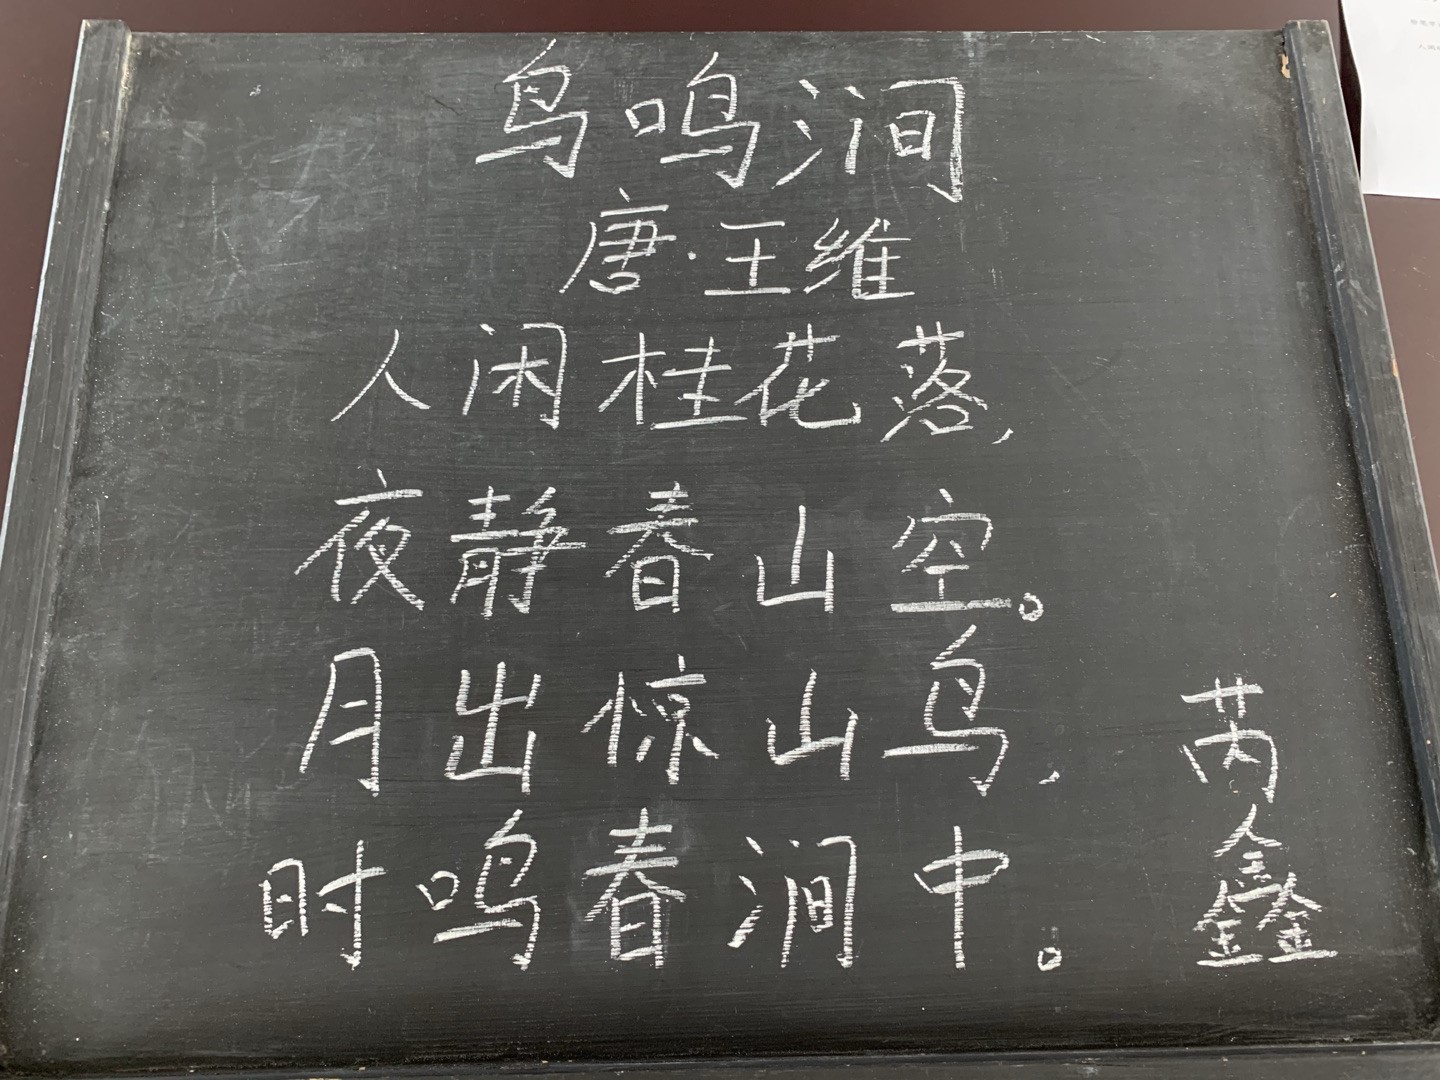 鸟鸣涧
唐·王维
人闲桂花落,
夜静春山空。
月出惊山鸟,
时鸣春涧中。
芮鑫